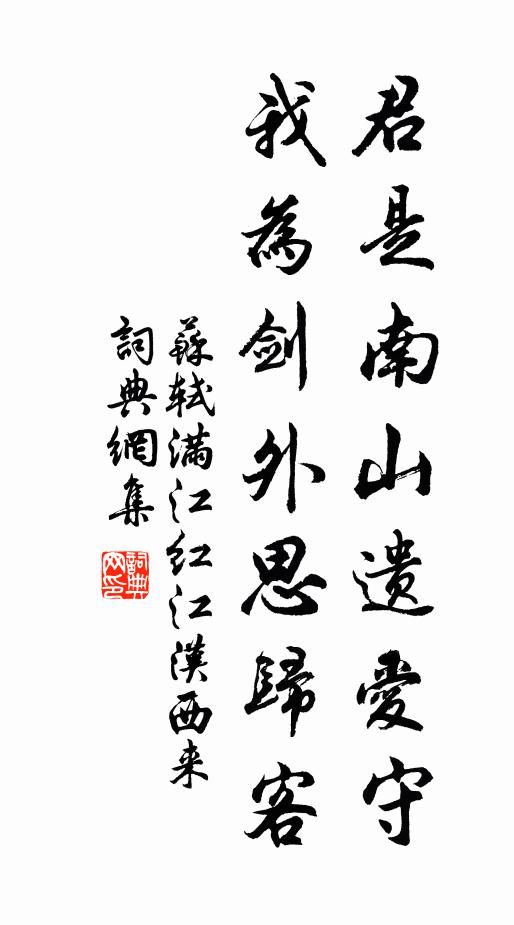 君是南山遺愛守
我為劍外思歸客
蘇軾滿江紅江漢西来
詞典網集
詞典网印